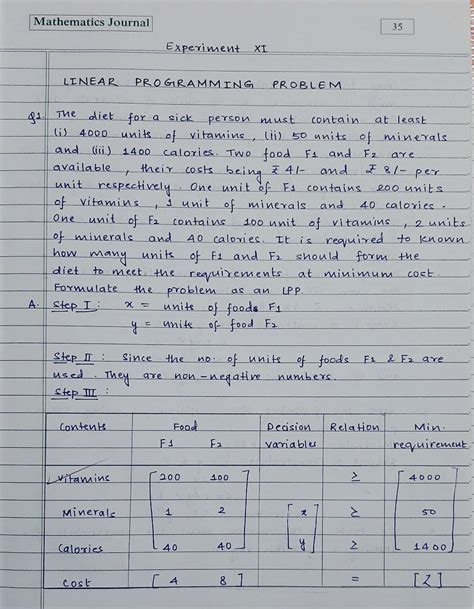 Mathematics Journal
35
Experiment XI
LINEAR PROGRAMMING PROBLEM
Q1. The diet for a sick person must contain at least
(i) 4000 units of vitamins, (ii) 50 units of minerals
and (iii) 1400 calories. Two food F1 and F2 are
available, their costs being ₹ 4/- and ₹ 8/- per
unit respectively. One unit of F1 contains 200 units
of vitamins, 1 unit of minerals and 40 calories.
One unit of F2 contains 100 unit of vitamins, 2 units
of minerals and 40 calories. It is required to known
how many units of F1 and F2 should form the
diet to meet the requirements at minimum cost.
Formulate the problem as an LPP.
A. Step I : x = units of foods F1
y = units of food F2
Step II : Since the no. of units of foods F1 & F2 are
used. They are non-negative numbers.
Step III :
Contents Food Decision Relation Min.
F1 F2 variables requirement
Vitamins 200 100 ≥ 4000
Minerals 1 2 x ≥ 50
Calories 40 40 y ≥ 1400
Cost [ 4 8 ] = [Z]